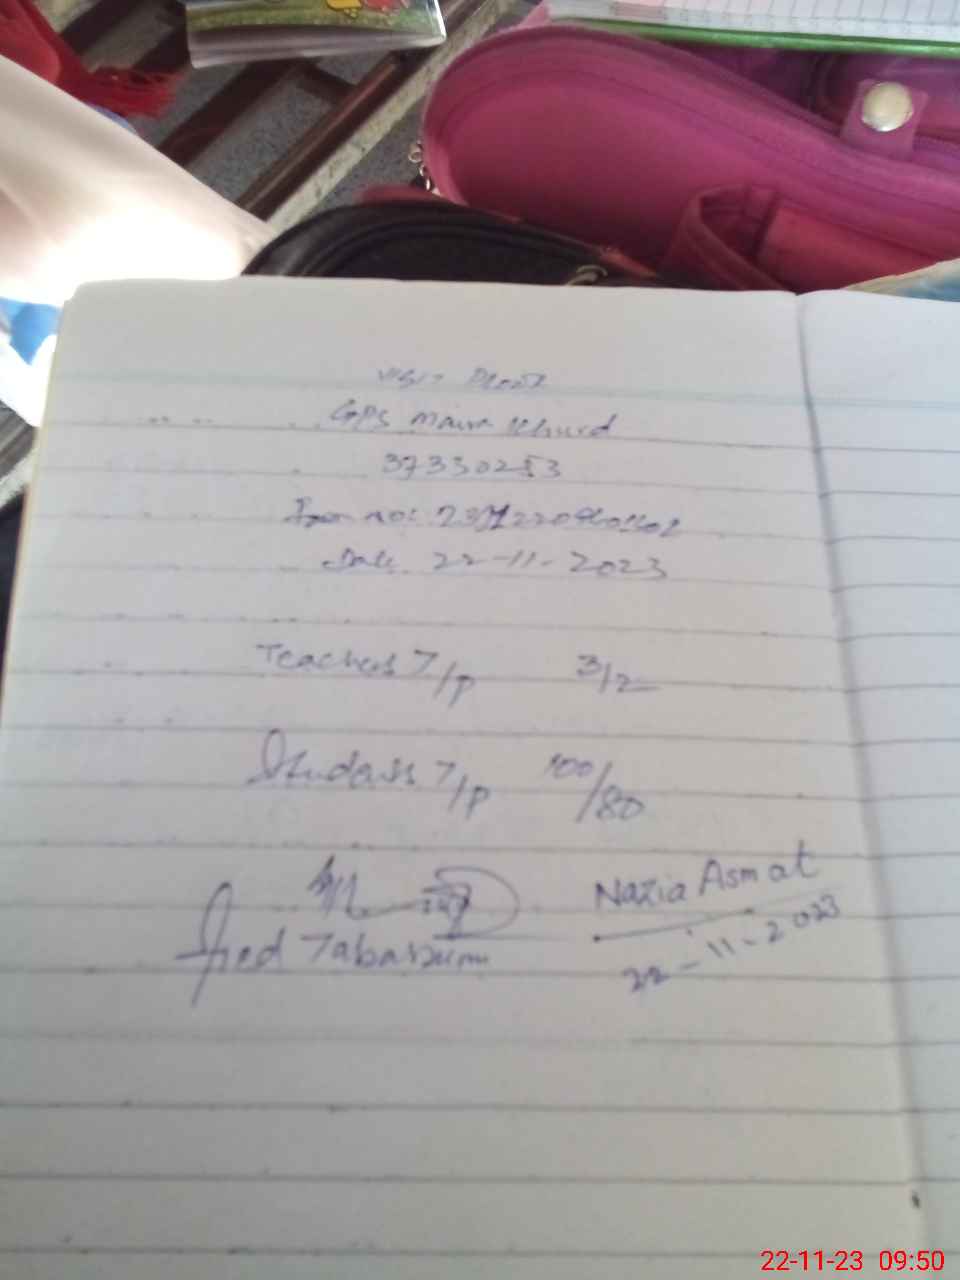 Visit Proof
GPS Maira Khurd
37330253
Date 22-11-2023
Teachers T/P 3/2
Students T/P 100/80
Nazia Asmat
Tabassum
22-11-2023
22-11-23 09:50